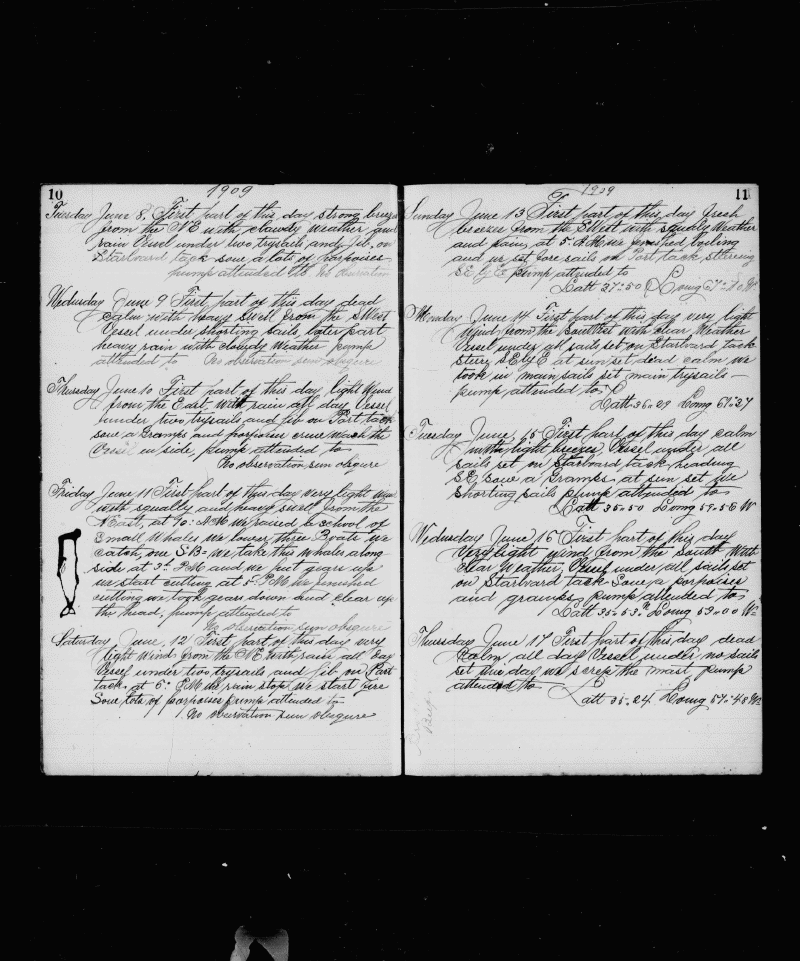 10
1909
Tuesday June 8, First part of this day strong breeze
from the NE with clawdy weather and
rain Vessel under two trysails and Jib. on
Starboard tack saw a lots of porpoises
pump attended to No obsevation
Wedusday June 9 First part of this day dead
calm with heavy swell from the SWest
Vessel under shorting sails, later part
heavy rain with clowdy Weather pump
attended to No obsevation sun obsgure
Thursday June 10 First part of this day light Wind
from the East, With rain all day Vessel
under two trysails and jib on Port tack
saw a Gramps and porpoises crue wash the
Vessel in side, pump attended to
No observation sun obsgure
Friday June 11 First part of this day very light wind
with squally and heavy swell from the
NEast, at 10: AM we raised a school of
small Whales we lower three Boats we
catch, one SB= we take this whales along
side at 3: PM and we put gears up
we start cutting at 5: PM we finished
cutting we took gears down and clear up
the head, pump attended to
No obsuvation sun obsgure
Saturday June, 12 First part of this day very
light Wind from the NE With rain all day
Vessel under two trysails and jib on Port
tack. at 6: PM the rain stop we start fire
Sow lots of porpoises pump attended to
No obsuvation sun obsgure
1909
11
Sunday June 13 First part of this day fresh
breezes from the SWest with squaly Weather
and rain, at 5 AM we finished boiling
and we set fore sails on Port tack steering
SE by E pump attended to
Latt 37=50 Loung
Monday June 14 First part of this day very light
Wind from the SouthWest with clear Weather
Vessel under all sails set on Starboard tack
steery SEbyE at sun set dead calm we
took in main sails set main trysails
pump attended to
Latt 36=29 Loung 61=37
Tuesday June 15 First part of this day calm
with light breezes Vessel under all
sails set on Starboard tack heading
SE, Sow a Gramps at sun set we
shorting sails pump attended to
Latt 35=50 Loung 59=56 W
Wedusday June 16 First part of his day
Very light wind from the South With
clear Weather, Vessel under all sails set
on Starboard tack Sow a porpoises
and gramps, pump attended to
Latt 35=53 N Loung 59=00 W=
Thursday June 17 First part of this day dead
Calm, all day Vessel under no sails
set the day we screp the mast pump
attended to
Latt 35=24 Loung 57=48 W=